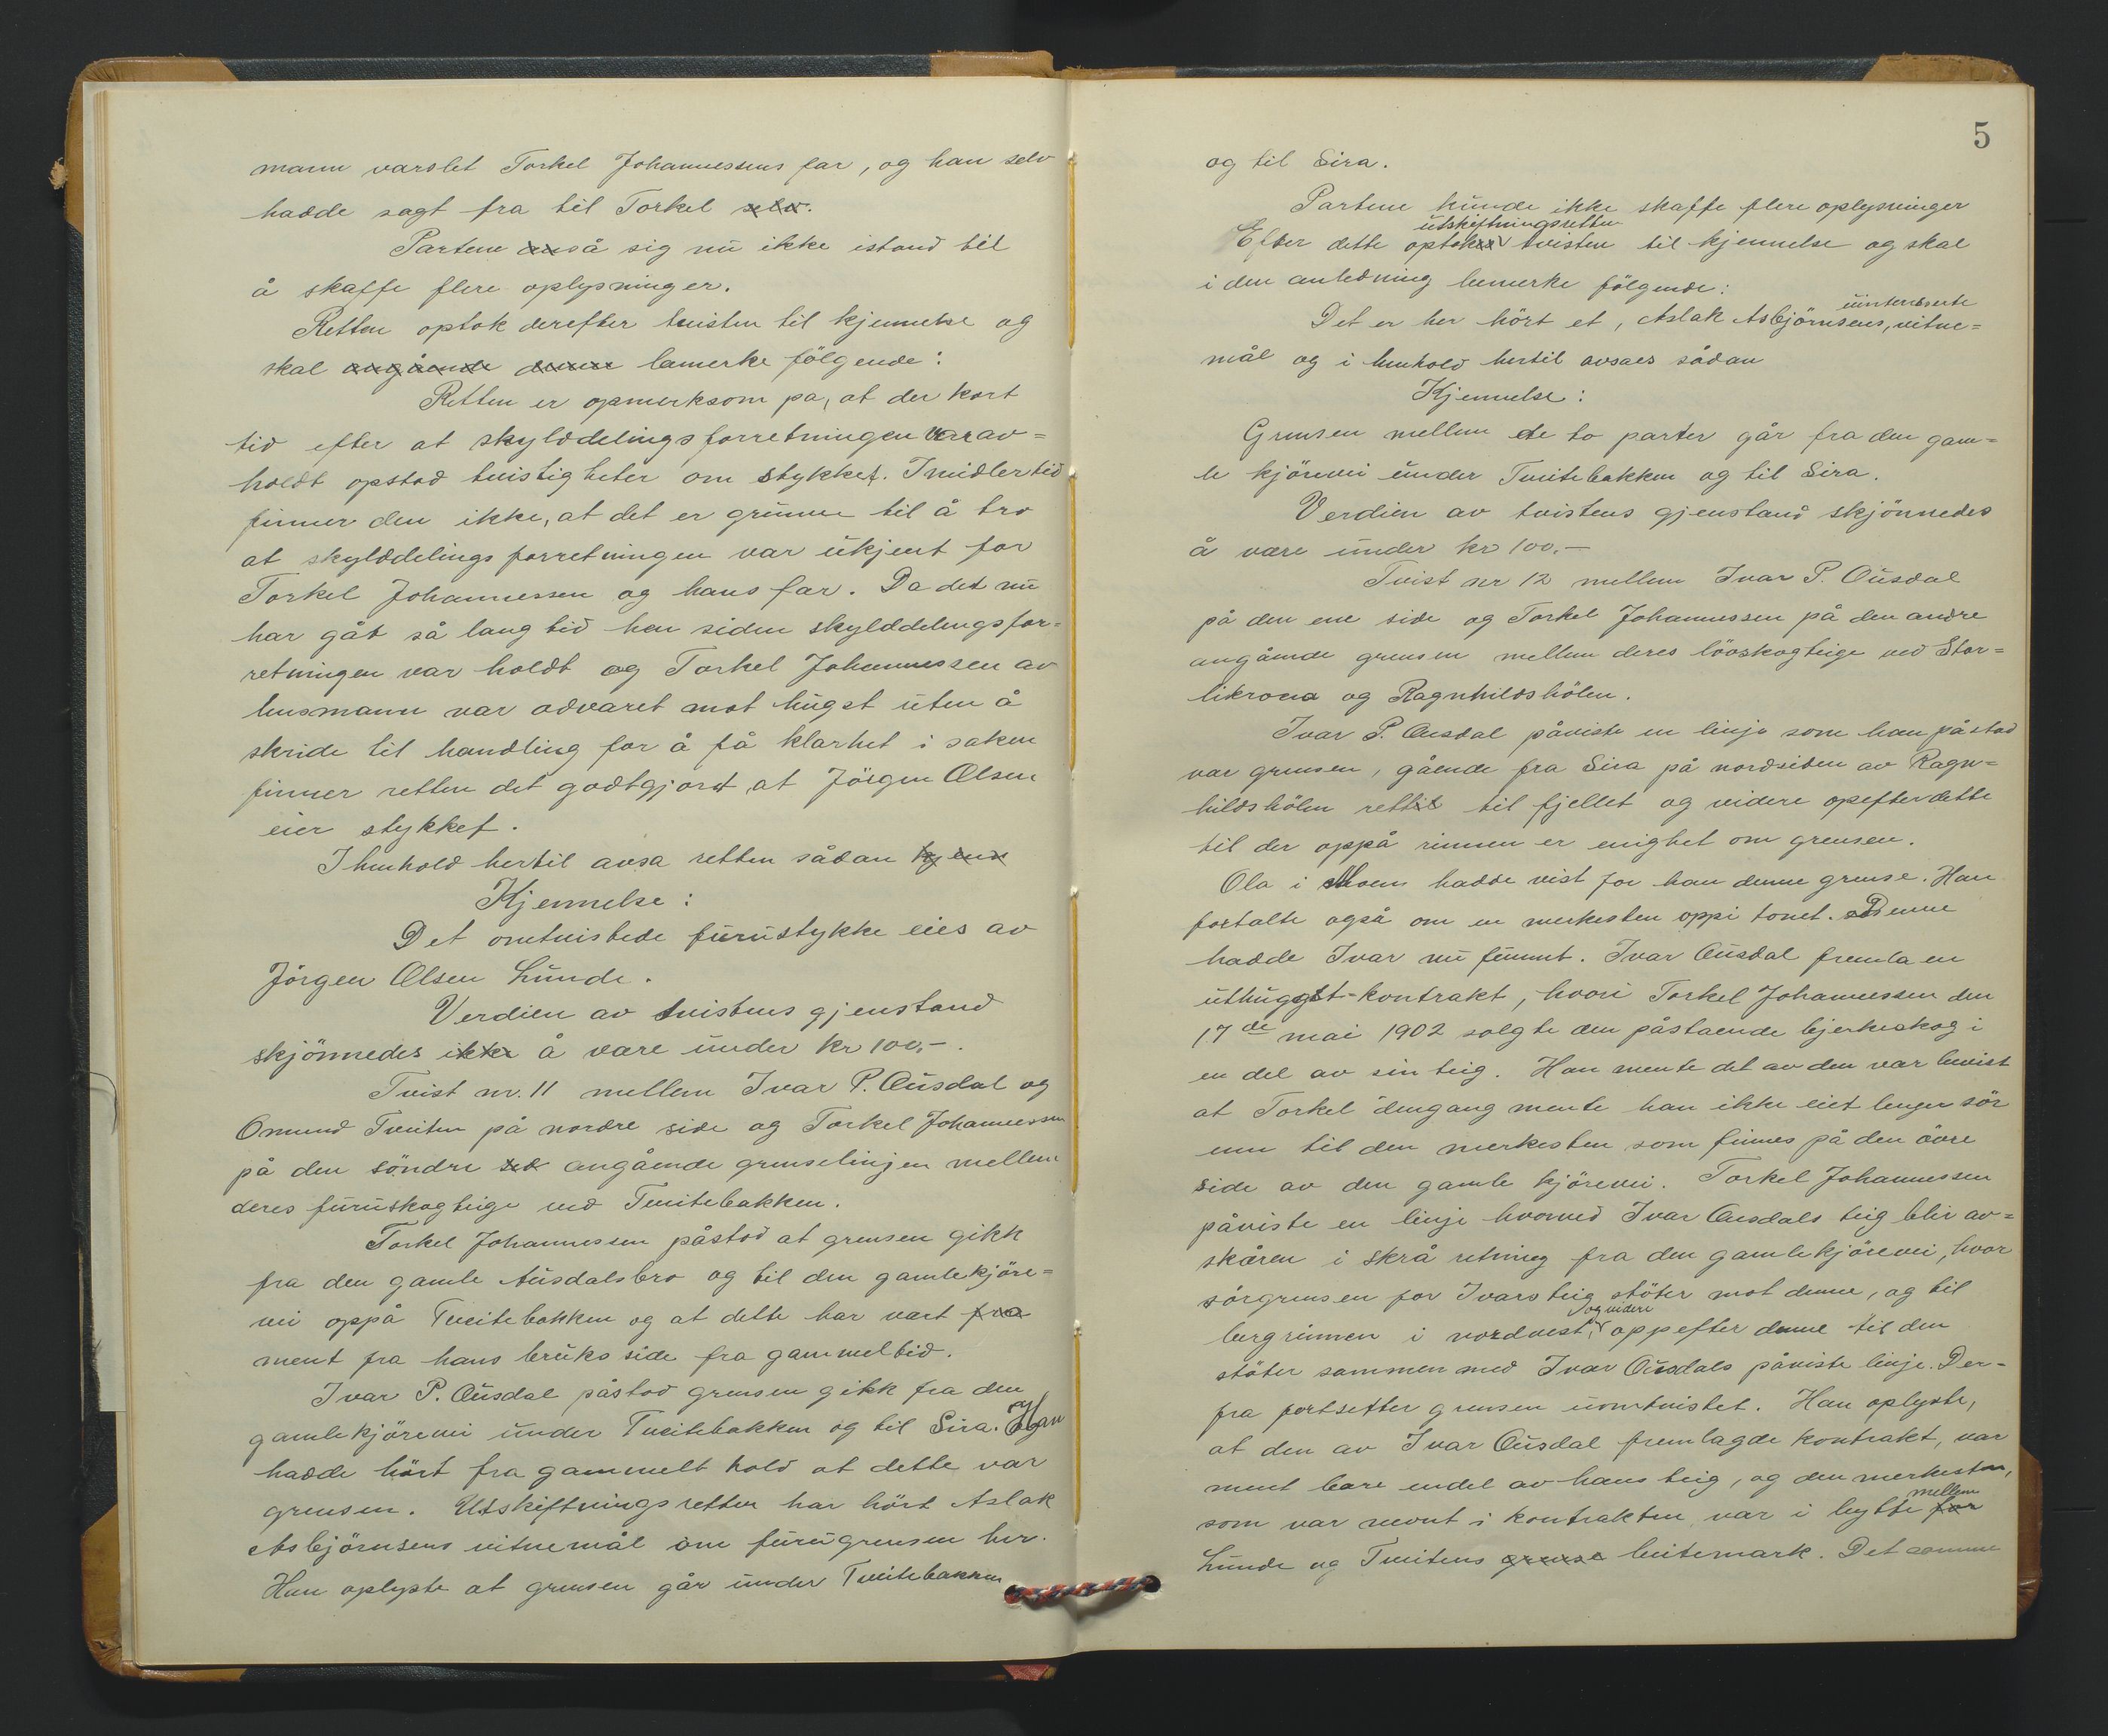 mann varslet Torkel Johannessens far, og han selv
hadde sagt fra til Torkel selv.
Partene anså sig nu ikke istand til
å skaffe flere oplysninger.
Retten optok derefter tvisten til kjennelse og
skal angående denne bemerke fölgende:
Retten er opmerksom pa, at der kort
tid efter at skylddelingsforretningen var av=
holdt opstod tvistigheter om stykket. Imidlertid
finner den ikke, at det er grunn til å tro
at skylddelingsforretningen var ukjent for
Torkel Johannessen og hans far. Da det nu
har gåt så lang tid hen siden skylddelingsfor=
retningen var holdt og Torkel Johannessen av
husmann var advaret mot hugst uten å
skride til handling for å få klarhet i saken
finner retten det godtgjort, at Jörgen Olsen
eier stykket.
I henhold hertil avsa retten sådan kjenn
Kjennelse:
Det omtvistede furustykke eies av
Jörgen Olsen Lunde.
Verdien av tvistens gjenstand
skjönnedes ikke å være under kr 100,-.
Tvist nr. 11 mellem Ivar P. Ousdal og
Omund Tveiten på nordre side og Torkel Johannessen
på den söndre sid angående grenselinjen mellem
deres furuskogteige ved Tveitebakken.
Torkel Johannessen påstod at grensen gikk
fra den gamle Ausdalsbro og til den gamle kjöre=
vei oppå Tveitebakken og at dette har vært fra
ment fra hans bruks side fra gammel tid.
Ivar P. Ousdal påstod grensen gikk fra den
gamle kjörevei under Tveitebakken og til Sira. Han
hadde hört fra gammelt hold at dette var
grensen. Utskiftningsretten har hört Aslak
Asbjörnsens vitnemål om furugrensen her.
Han oplyste at grensen går under Tveitebakken
5
og til Sira.
Partene kunde ikke skaffe flere oplysninger
utskiftningsretten
Efter dette optokes tvisten til kjennelse og skal
i den anledning bemerke fölgende:
uinteresserte
Det er her hört et, Aslak Asbjörnsens, vitne=
mål og i henhold hertil avsaes sådan
Kjennelse:
Grensen mellem de to parter går fra den gam=
le kjörevei under Tveitebakken og til Sira.
Verdien av tvistens gjenstand skjönnedes
å være under kr 100,-
Tvist nr 12 mellem Ivar P. Ousdal
på den ene side og Torkel Johannessen på den andre
angående grensen mellem deres lövskogteige ved Stor=
likroen og Ragnhildshölen.
Ivar P. Ousdal påviste en linje som han påstod
var grensen, gående fra Sira på nordsiden av Ragn=
hildshölen rett til fjellet og videre opefter dette
til der oppå rinnen er enighet om grensen.
Ola i Moen hadde vist for han denne grense. Han
fortalte også om en merkesten oppi tonet. Denne
hadde Ivar nu funnet. Ivar Ousdal fremla en
uthuggst-kontrakt, hvori Torkel Johannessen den
17de mai 1902 solgte den påstående bjerkeskog i
en del av sin teig. Han mente det av den var bevist
at Torkel dengang mente han ikke eiet lenger sör
enn til den merkesten som finnes på den övre
side av den gamle kjörevei. Torkel Johannessen
påviste en linje hvorved Ivar Ousdals teig blir av=
skåren i skrå retning fra den gamle kjörevei, hvor
sörgrensen for Ivars teig stöter mot denne, og til
og videre
bergrinnen i nordvest, oppefter denne til den
stöter sammen med Ivar Ousdals påviste linje. Der-
fra fortsetter grensen uomtvistet. Han oplyste,
at den av Ivar Ousdal fremlagde kontrakt, var
ment bare endel av hans teig, og den merkesten,
mellem
som var nevnt i kontrakten var i bytte for
Lunde og Tveitens grense beitemark. Det samme